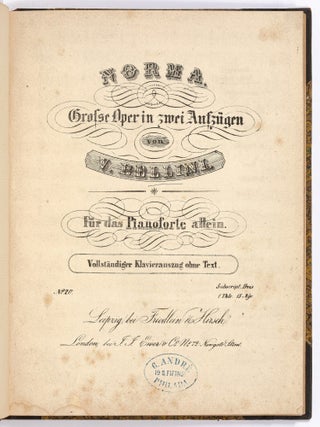 NORMA.
Große Oper in zwei Aufzügen
von
V. BELLINI.
Für das Pianoforte allein.
Vollständiger Klavierauszug ohne Text.
No. 20.
Subscript. Preis
1 Thlr. 15 Ngr.
Leipzig, bei Friedlein & Hirsch
London, bei J. J. Ewer & Co. No. 72 Newgate Street.
G. ANDRÉ
PHILADA